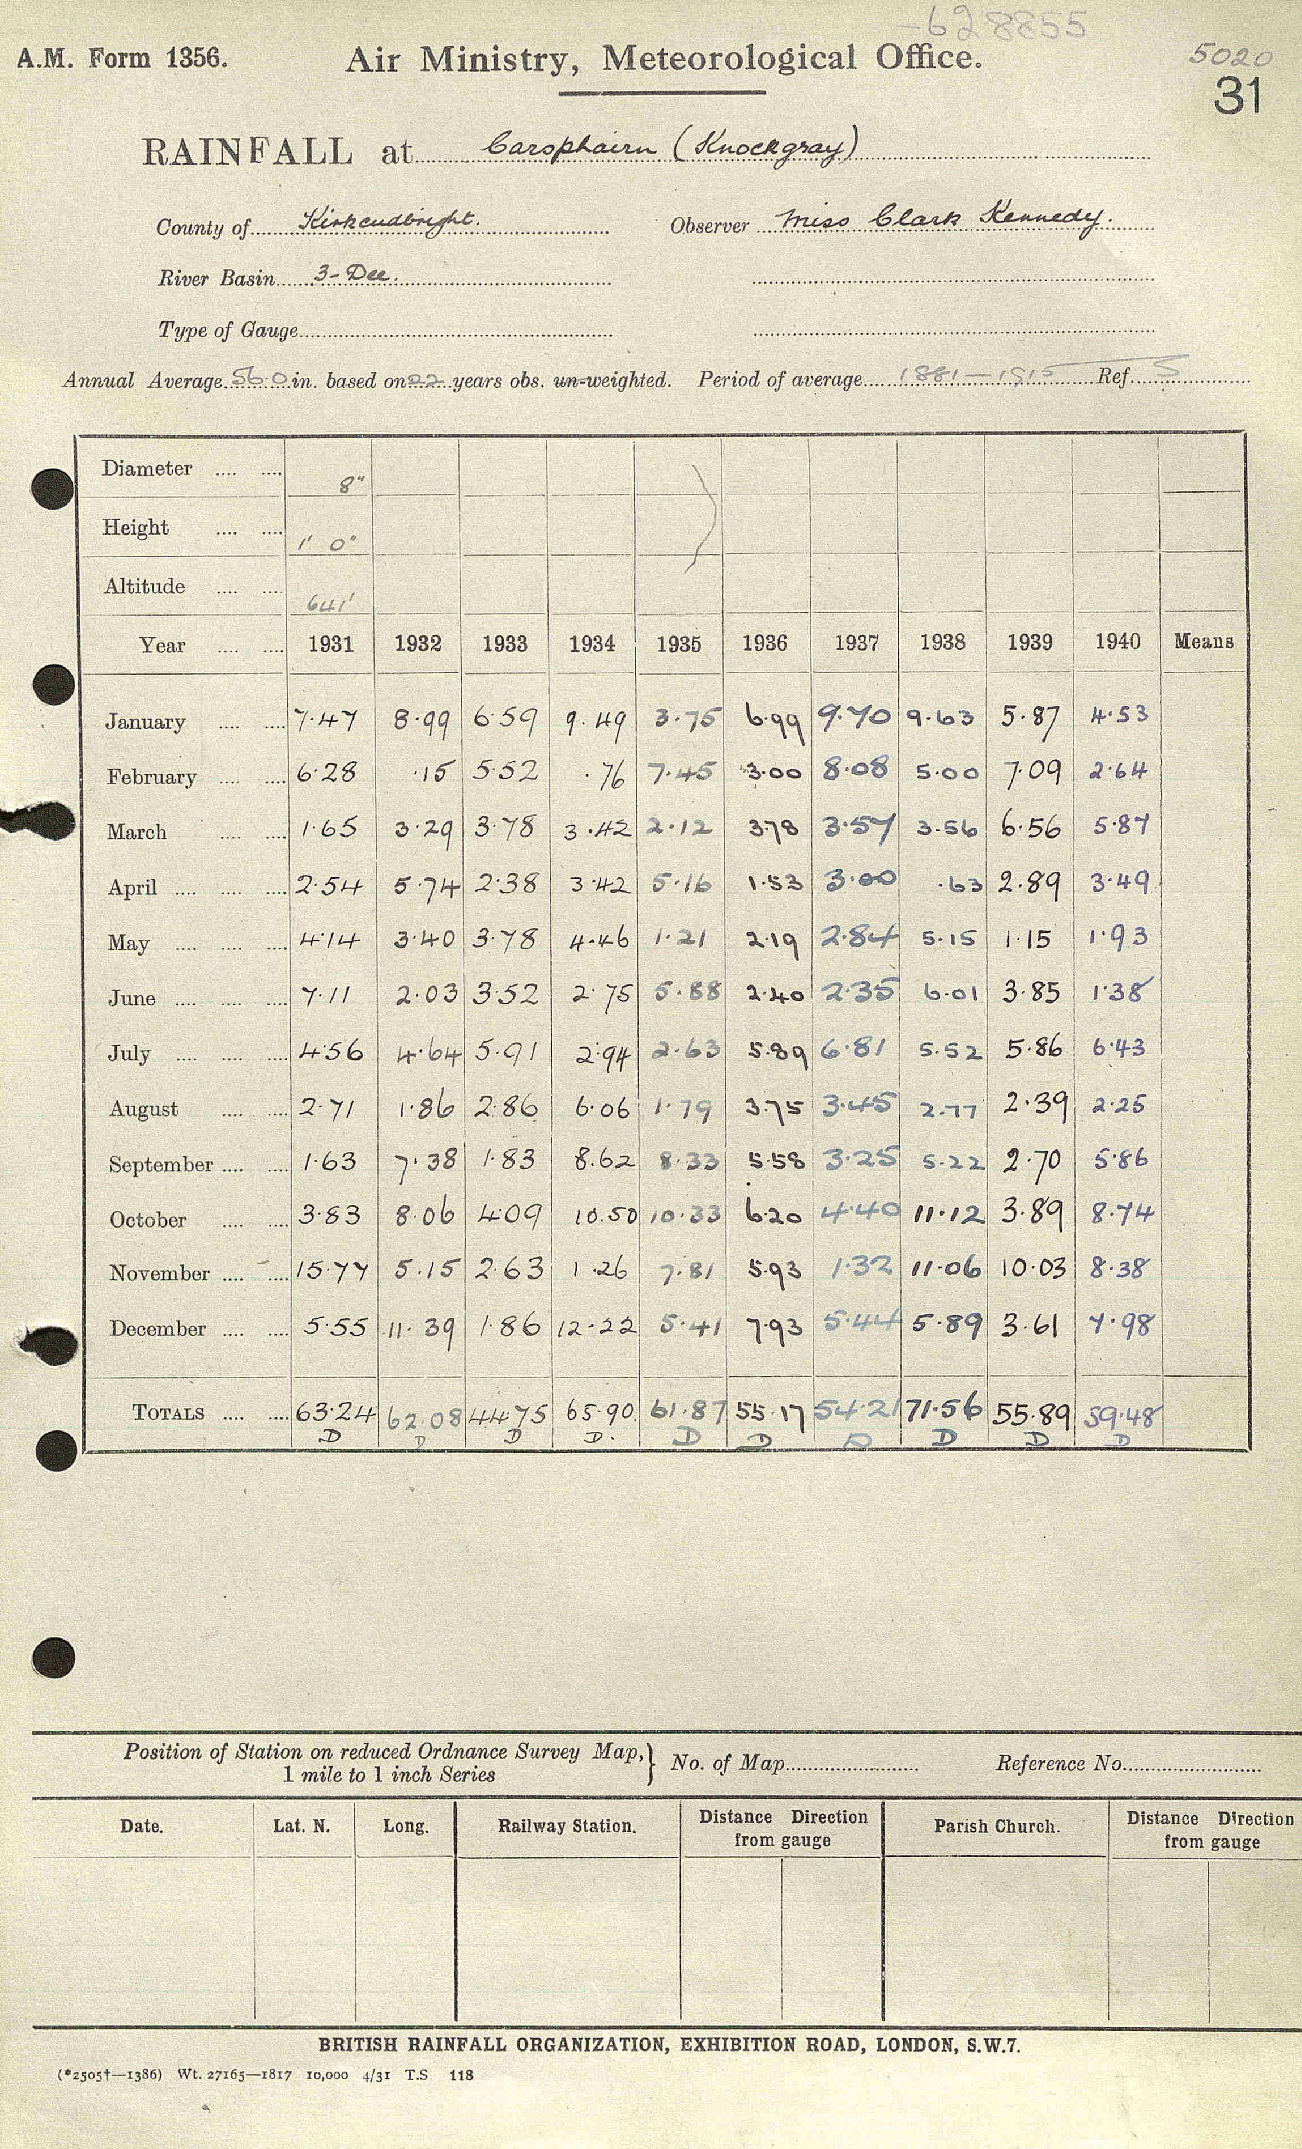 -628855
A.M. Form 1356. Air Ministry, Meteorological Office. 5020
31
RAINFALL at Carsphairn (Knockgray)
County of Kirkcudbright. Observer Miss Clark Kennedy.
River Basin 3-Dee.
Type of Gauge
Annual Average 56.0 in. based on 22 years obs. un-weighted. Period of average 1881-1915 Ref. S
Diameter 8"
Height 1' 0"
Altitude 641'
Year 1931 1932 1933 1934 1935 1936 1937 1938 1939 1940 Means
January 7.47 8.99 6.59 9.49 3.75 6.99 9.70 9.63 5.87 4.53
February 6.28 .15 5.52 .76 7.45 3.00 8.08 5.00 7.09 2.64
March 1.65 3.29 3.78 3.42 2.12 3.78 3.57 3.56 6.56 5.87
April 2.54 5.74 2.38 3.42 5.16 1.53 3.00 .63 2.89 3.49
May 4.14 3.40 3.78 4.46 1.21 2.19 2.84 5.15 1.15 1.93
June 7.11 2.03 3.52 2.75 5.88 2.40 2.35 6.01 3.85 1.38
July 4.56 4.64 5.91 2.94 2.63 5.89 6.81 5.52 5.86 6.43
August 2.71 1.86 2.86 6.06 1.79 3.75 3.45 2.77 2.39 2.25
September 1.63 7.38 1.83 8.62 8.33 5.58 3.25 5.22 2.70 5.86
October 3.83 8.06 4.09 10.50 10.33 6.20 4.40 11.12 3.89 8.74
November 15.77 5.15 2.63 1.26 7.81 5.93 1.32 11.06 10.03 8.38
December 5.55 11.39 1.86 12.22 5.41 7.93 5.44 5.89 3.61 7.98
TOTALS 63.24 62.08 44.75 65.90 61.87 55.17 54.21 71.56 55.89 59.48
D D D D. D D D D D D
Position of Station on reduced Ordnance Survey Map, } No. of Map Reference No.
1 mile to 1 inch Series
Date. Lat. N. Long. Railway Station. Distance Direction from gauge Parish Church. Distance Direction from gauge
BRITISH RAINFALL ORGANIZATION, EXHIBITION ROAD, LONDON, S.W.7.
(*2505†—1386) Wt. 27165—1817 10,000 4/31 T.S 118